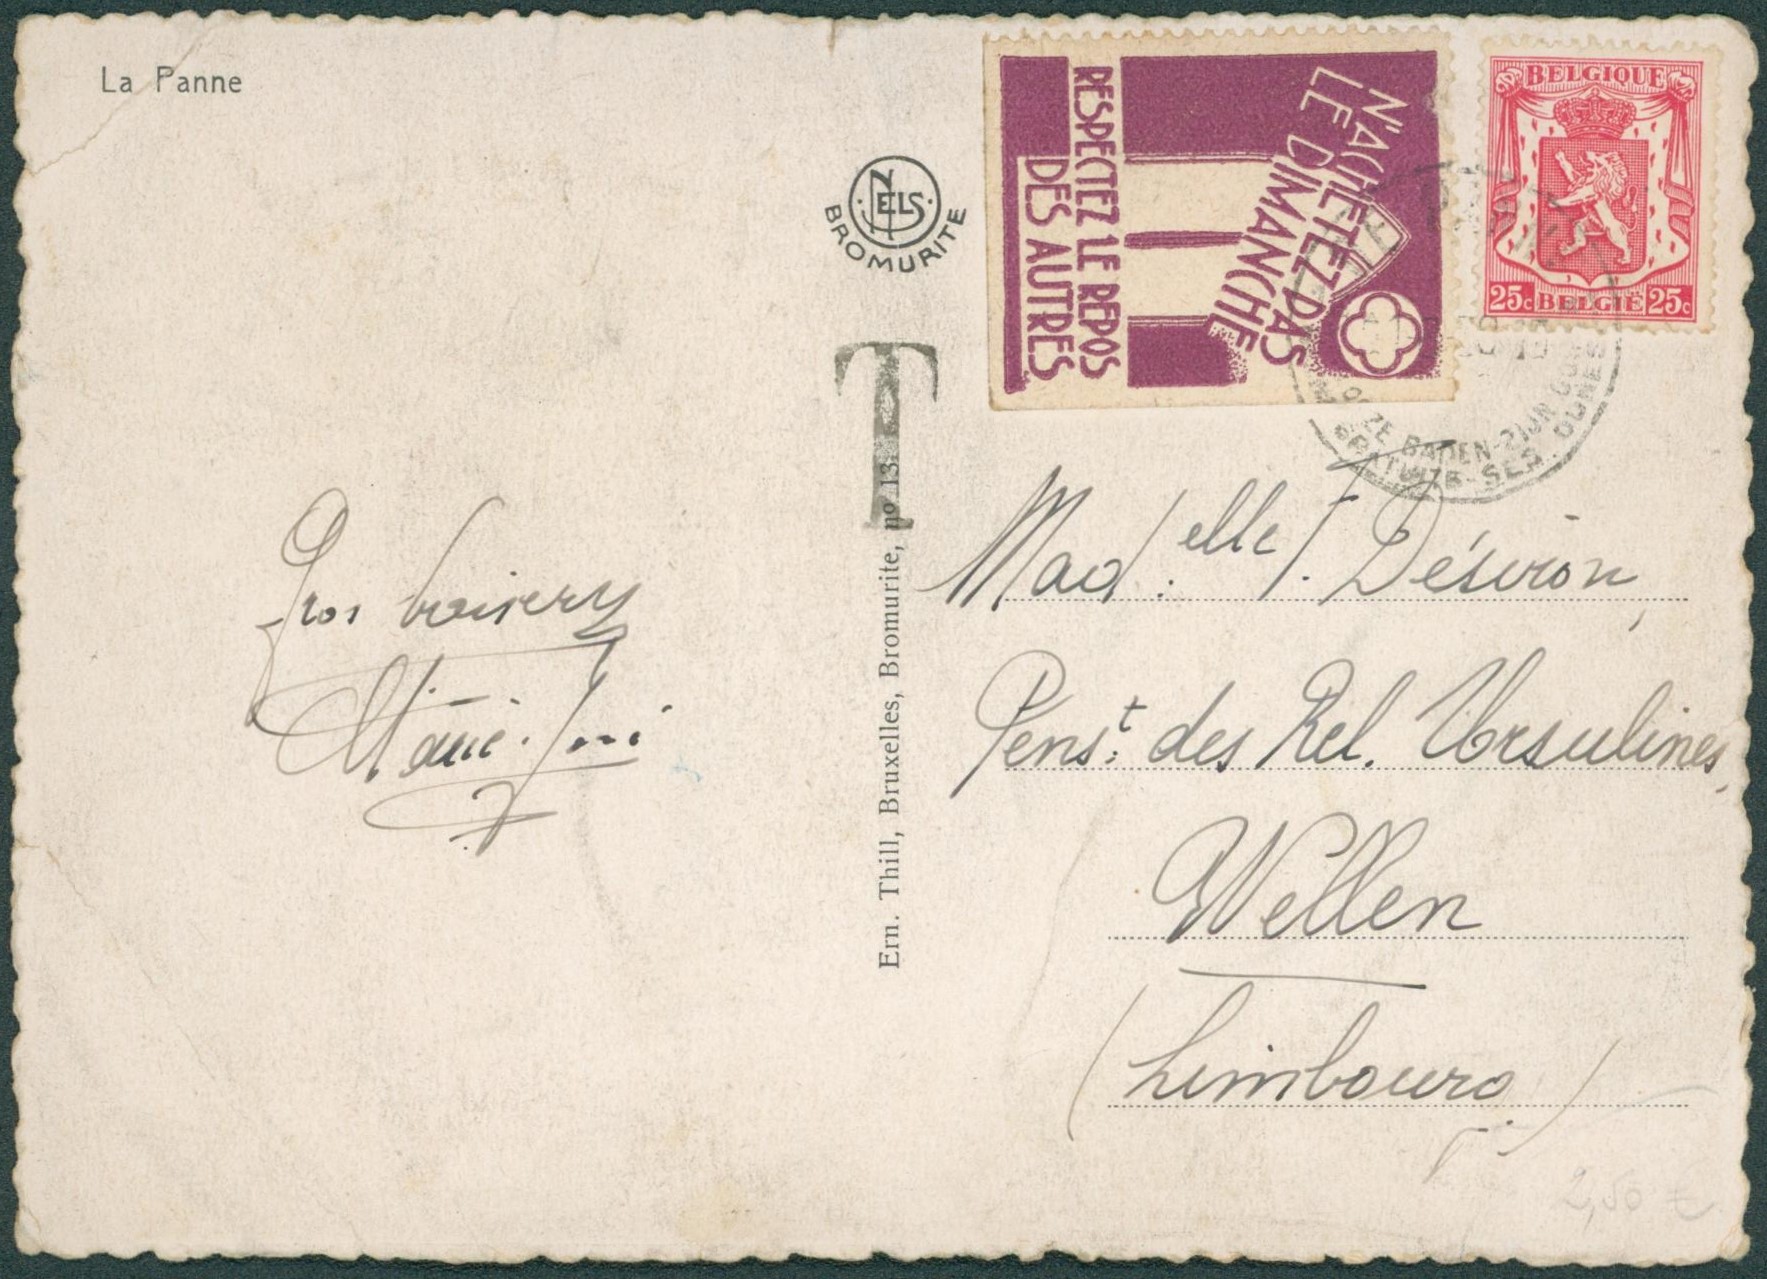 La Panne
NELS
BROMURITE
N'ACHETEZ PAS
LE DIMANCHE
RESPECTEZ LE REPOS
DES AUTRES
BELGIQUE
25c BELGIË 25c
ONZE BADEN-ZIJN
GRATUITS-SES DUNES
T
Ern. Thill, Bruxelles, Bromurite, nº 13.
Gros baisers
Marie-José
Mad.elle F. Désiron,
Penst. des Rel. Ursulines,
Wellen
(Limbourg)
2,50 €